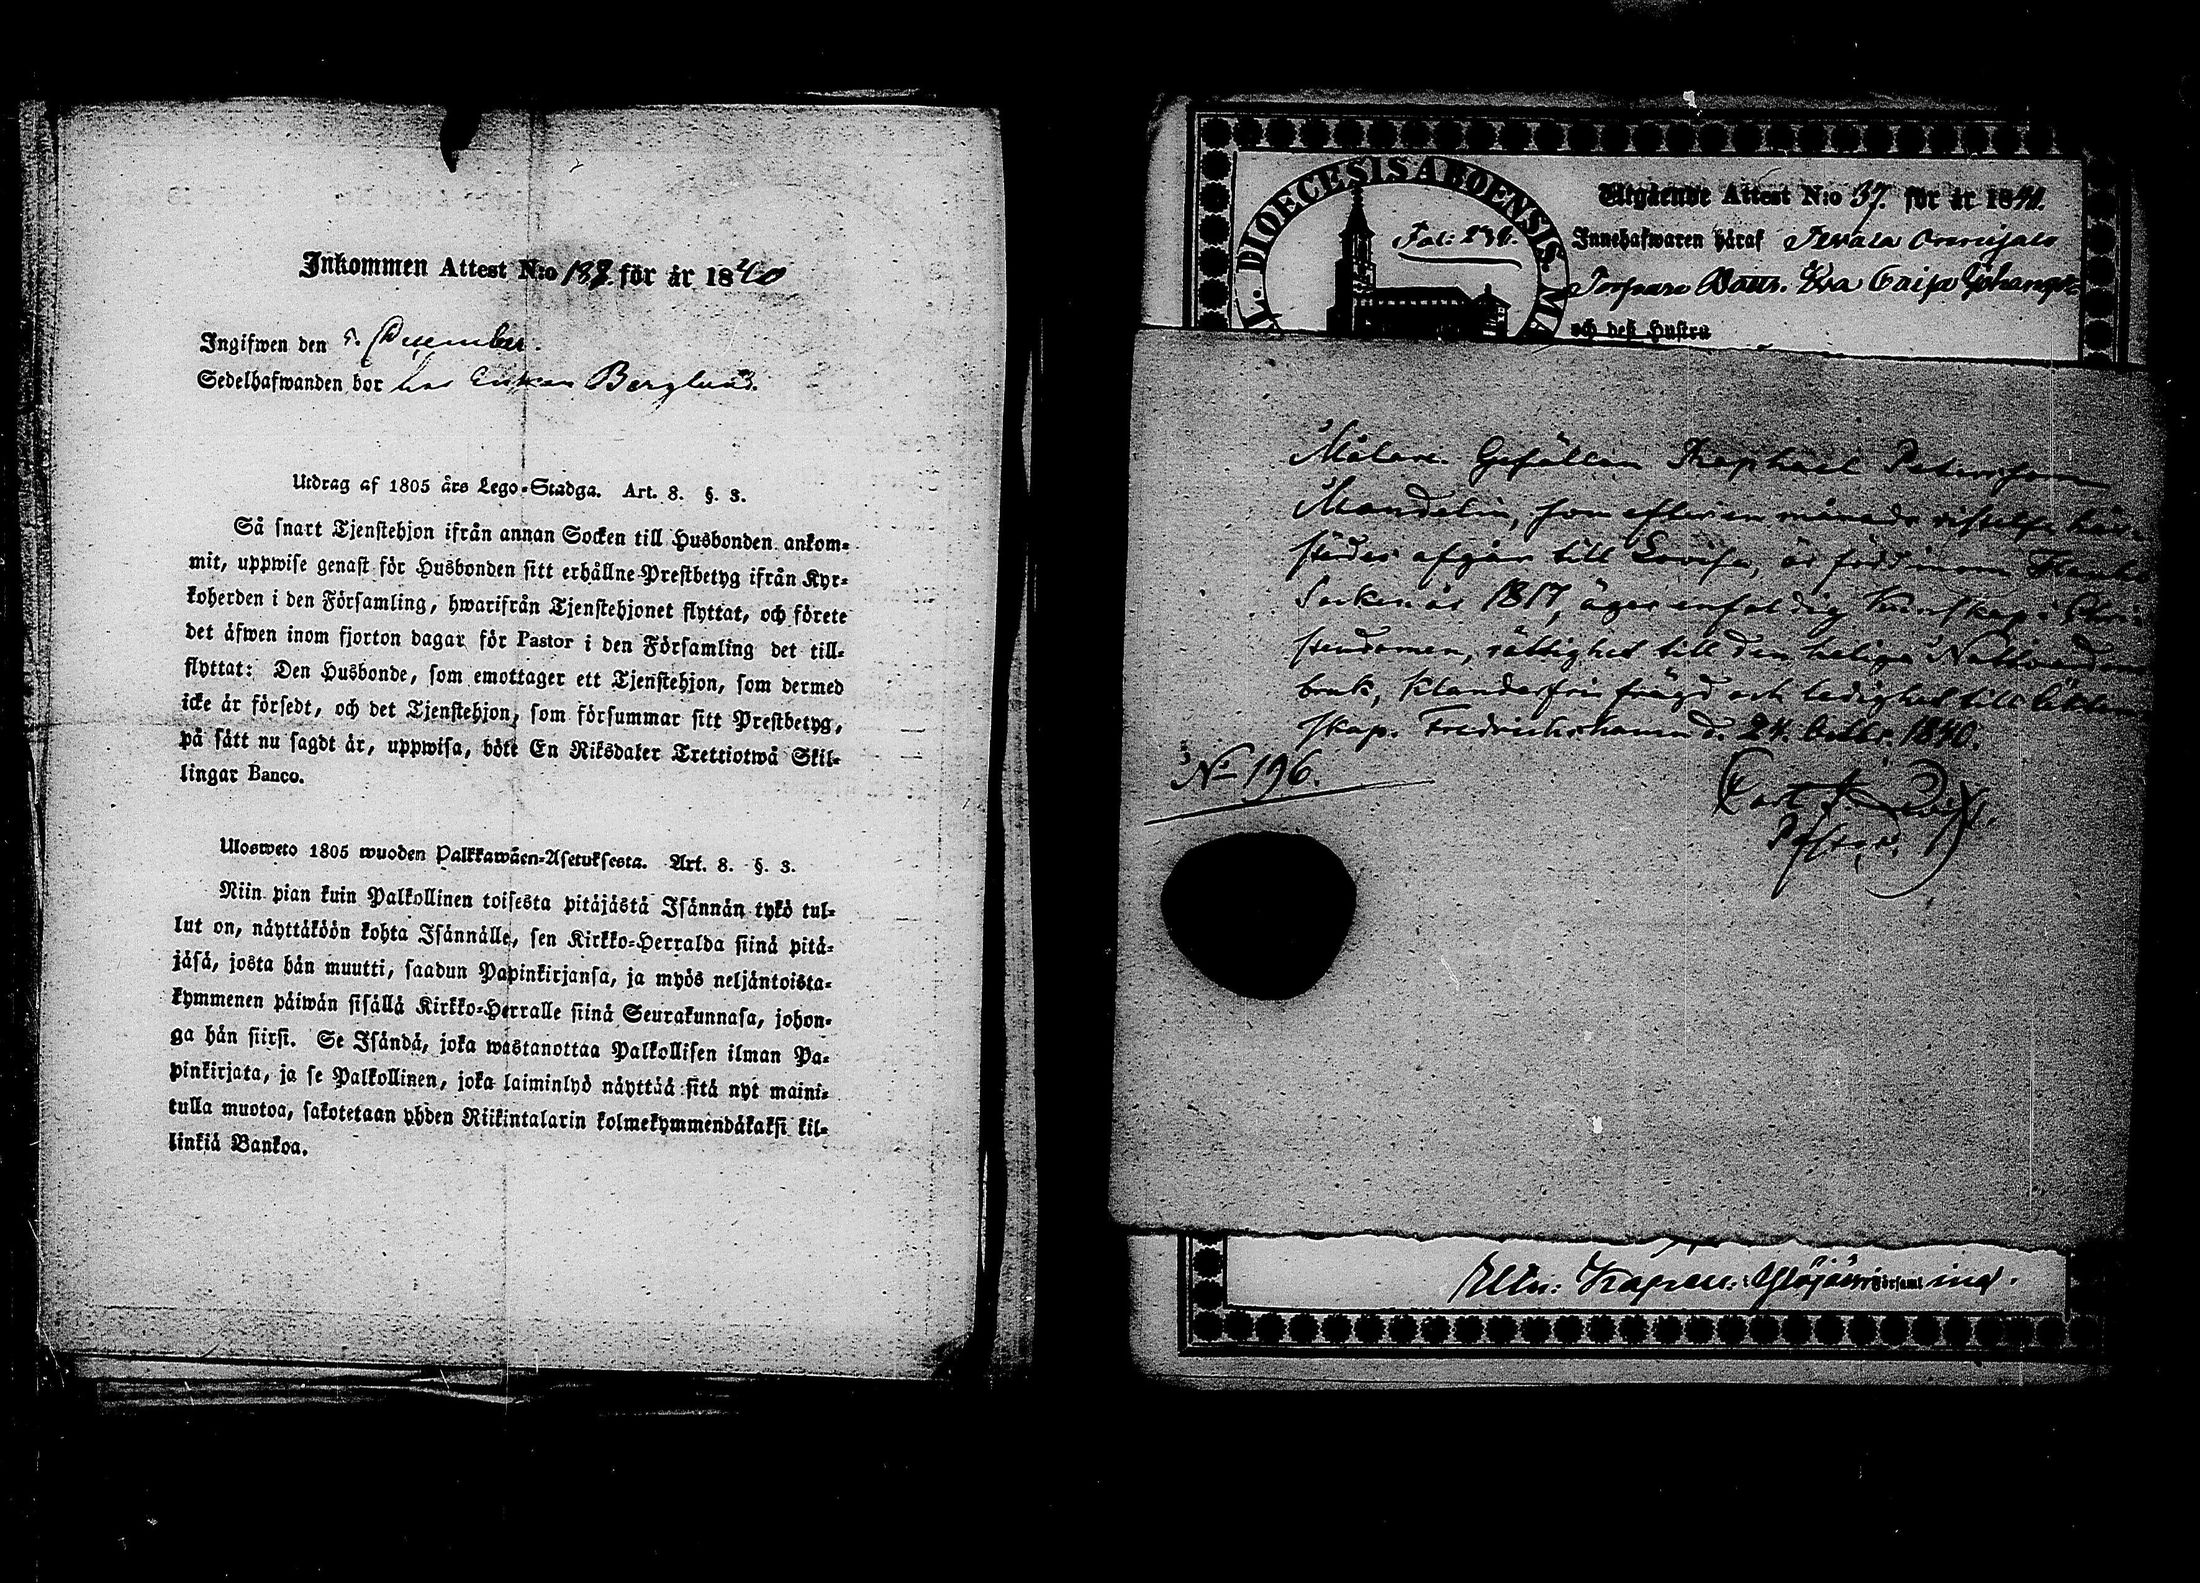 Inkommen Attest N:o 188. för år 1840
Ingifwen den 5. December.
Sedelhafwanden bor hos Enkan Berglund.
Utdrag af 1805 års Lego-Stadga. Art. 8. §. 3.
Så snart Tjenstehjon ifrån annan Socken till Husbonden ankom-
mit, uppwise genast för Husbonden sitt erhållne Prestbetyg ifrån Kyr-
koherden i den Församling, hwarifrån Tjenstehjonet flyttat, och förete
det äfwen inom fjorton dagar för Pastor i den Församling det till-
flyttat: Den Husbonde, som emottager ett Tjenstehjon, som dermed
icke är försedt, och det Tjenstehjon, som försummar sitt Prestbetyg,
på sätt nu sagdt är, uppwisa, böte En Riksdaler Trettiotwå Skil-
lingar Banco.
Ulosweto 1805 wuoden Palkkawäen-Asetuksesta. Art. 8. §. 3.
Niin pian kuin Palkollinen toisesta pitäjästä Isännän tykö tul-
lut on, näyttäköön kohta Isännälle, sen Kirkko-Herralda siinä pitä-
jäsä, josta hän muutti, saadun Papinkirjansa, ja myös neljäntoista-
kymmenen päiwän sisällä Kirkko-Herralle siinä Seurakunnasa, johon-
ga hän siirsi. Se Isändä, joka wastanottaa Palkollisen ilman Pa-
pinkirjata, ja se Palkollinen, joka laiminlyö näyttää sitä nyt maini-
tulla muotoa, sakotetaan yhden Riikintalarin kolmekymmendäkaksi kil-
linkiä Bankoa.
DIOECESIS ABOENSIS. MA
Fol: 236.
Utgående Attest N:o 37. för år 1840.
Innehafwaren häraf
Torpare Dottr. Eva Caisa Johansd:
och dess Hustru
Målare Gesällen Raphael Petersson
Mandelin, som efter en månads vistelse här-
städes afgår till Lovisa, är född inom
Socken år 1817, äger enfaldig kunskap i Chri-
stendomen, rättighet till den heliga Nattvardens
bruk, klanderfri frägd och ledighet till äkten-
skap. Fredrichshamn d. 24. Octbr. 1840.
N:o 196.
Pastor.
i Ylöjärvi församl ing.